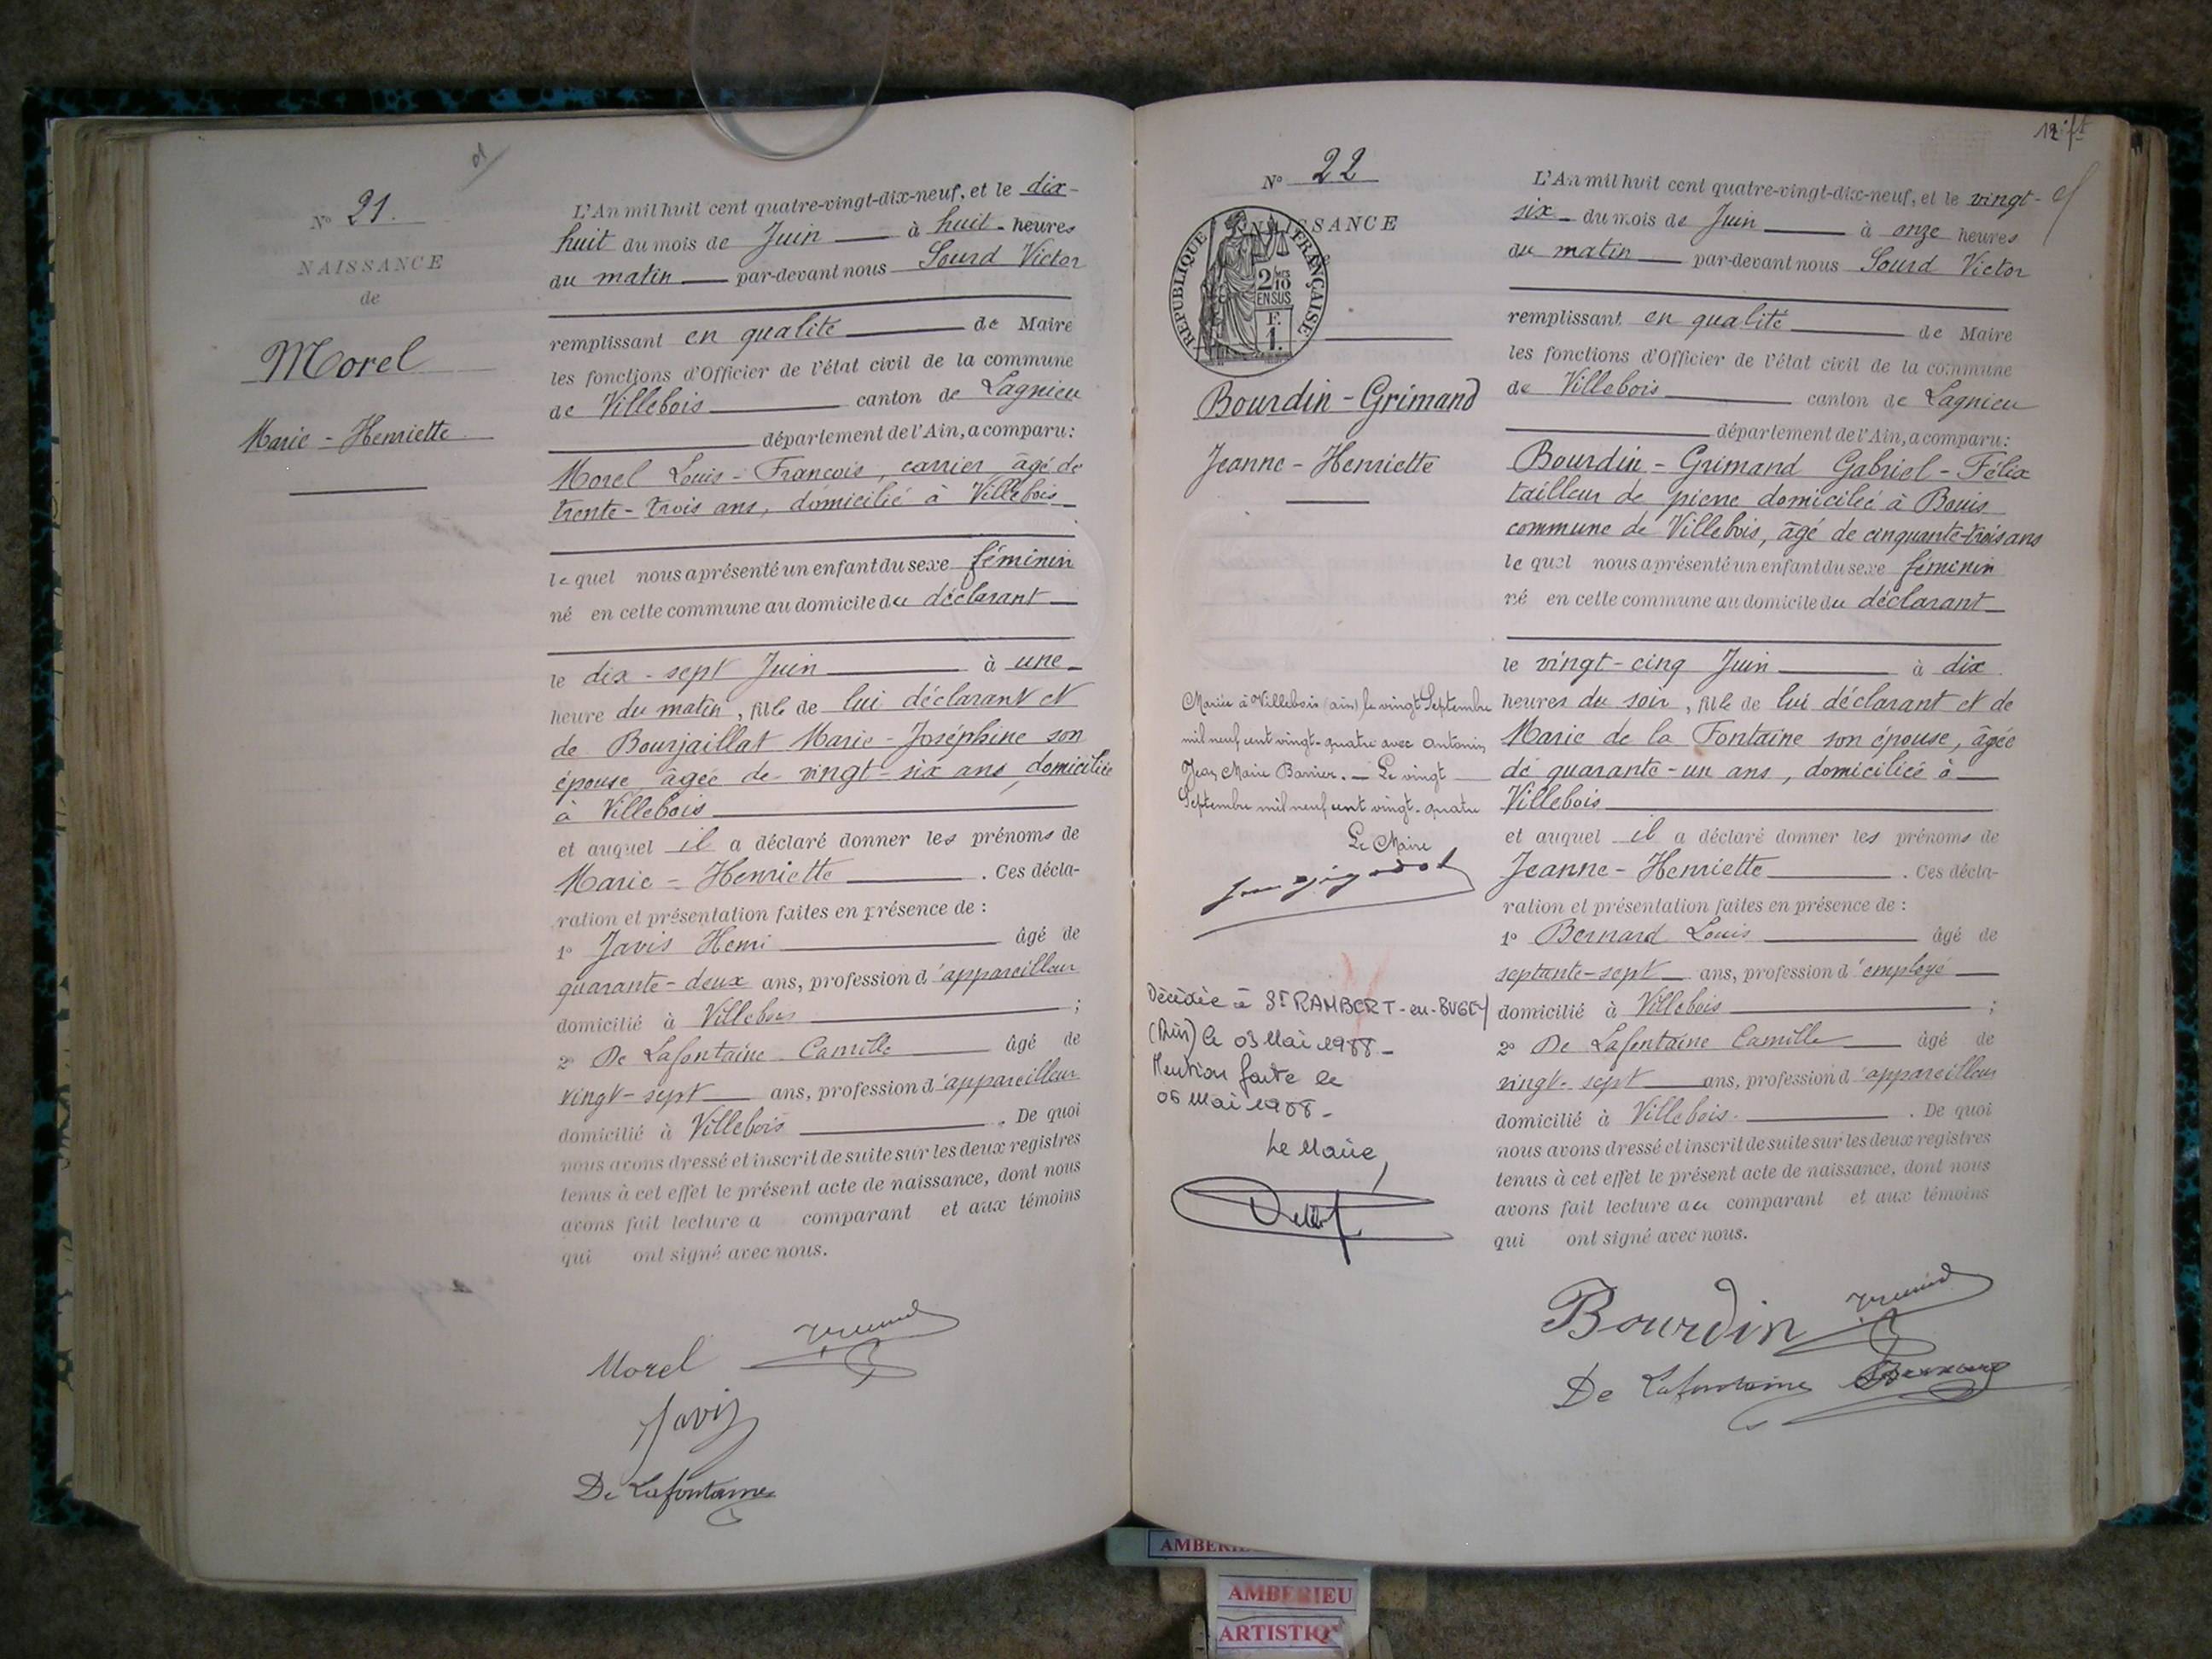 Nº 21.
NAISSANCE
de
Morel
Marie - Henriette
L'An mil huit cent quatre-vingt-dix-neuf, et le dix-
huit du mois de Juin à huit heures
du matin par-devant nous Sourd Victor
remplissant en qualité de Maire
les fonctions d'Officier de l'état civil de la commune
de Villebois canton de Lagnieu
département de l'Ain, a comparu:
Morel Louis-François, carrier, âgé de
trente-trois ans, domicilié à Villebois
lequel nous a présenté un enfant du sexe féminin
né en cette commune au domicile du déclarant
le dix-sept Juin à une
heure du matin, fille de lui déclarant et
de Bourjaillat Marie-Joséphine son
épouse âgée de vingt-six ans, domiciliée
à Villebois
et auquel il a déclaré donner les prénoms de
Marie - Henriette. Ces décla-
ration et présentation faites en présence de :
1º Javis Henri âgé de
quarante-deux ans, profession d'appareilleur
domicilié à Villebois ;
2º De Lafontaine Camille âgé de
vingt-sept ans, profession d'appareilleur
domicilié à Villebois. De quoi
nous avons dressé et inscrit de suite sur les deux registres
tenus à cet effet le présent acte de naissance, dont nous
avons fait lecture a comparant et aux témoins
qui ont signé avec nous.
Morel
Javis
De Lafontaine
12
Nº 22
NAISSANCE
RÉPUBLIQUE FRANÇAISE
2/10
EN SUS
F.
1.
Bourdin-Grimand
Jeanne - Henriette
L'An mil huit cent quatre-vingt-dix-neuf, et le vingt-
six du mois de Juin à onze heures
du matin par-devant nous Sourd Victor
remplissant en qualité de Maire
les fonctions d'Officier de l'état civil de la commune
de Villebois canton de Lagnieu
département de l'Ain, a comparu:
Bourdin-Grimand Gabriel-Félix
tailleur de pierre domicilié à Bouis
commune de Villebois, âgé de cinquante-trois ans
lequel nous a présenté un enfant du sexe féminin
né en cette commune au domicile du déclarant
le vingt-cinq Juin à dix
heures du soir, fille de lui déclarant et de
Marie de la Fontaine son épouse, âgée
de quarante-un ans, domiciliée à
Villebois
et auquel il a déclaré donner les prénoms de
Jeanne - Henriette. Ces décla-
ration et présentation faites en présence de :
1º Bernard Louis âgé de
septante-sept ans, profession d'employé
domicilié à Villebois ;
2º De Lafontaine Camille âgé de
vingt-sept ans, profession d'appareilleur
domicilié à Villebois. De quoi
nous avons dressé et inscrit de suite sur les deux registres
tenus à cet effet le présent acte de naissance, dont nous
avons fait lecture au comparant et aux témoins
qui ont signé avec nous.
Mariée à Villebois (ain) le vingt Septembre
mil neuf cent vingt-quatre avec Antonin
Jean Marie Barrier. — Le vingt
Septembre mil neuf cent vingt-quatre
Le Maire
Décédée à St RAMBERT-en-BUGEY
(Ain) le 03 Mai 1988 -
Mention faite le
06 Mai 1988 -
Le Maire,
Bourdin
De Lafontaine Bernard
AMBERIEU
AMBERIEU
ARTISTIQ